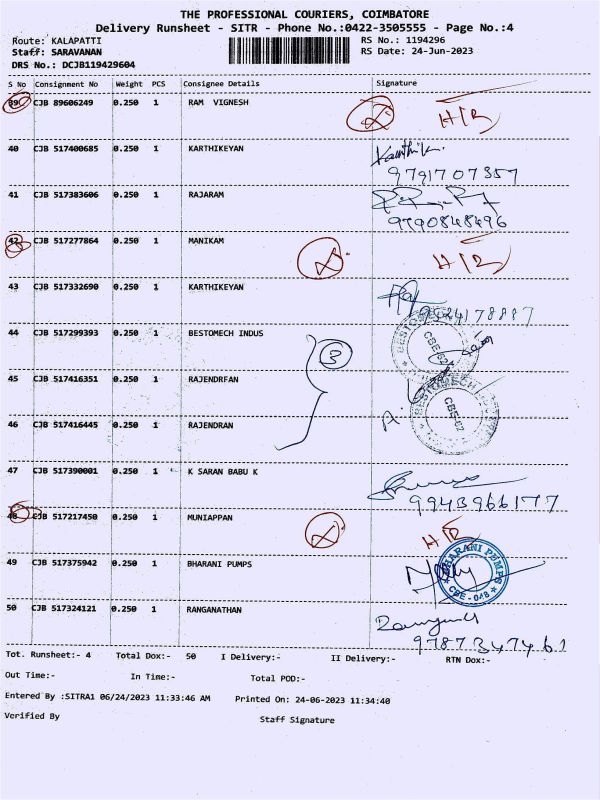 THE PROFESSIONAL COURIERS, COIMBATORE
Delivery Runsheet - SITR - Phone No.:0422-3505555 - Page No.:4
Route: KALAPATTI RS No.: 1194296
Staff: SARAVANAN RS Date: 24-Jun-2023
DRS No.: DCJB119429604
S No Consignment No Weight PCS Consignee Details Signature
39 CJB 89606249 0.250 1 RAM VIGNESH H/B
40 CJB 517400685 0.250 1 KARTHIKEYAN Karthik
9791707357
41 CJB 517383606 0.250 1 RAJARAM
9790848496
42 CJB 517277864 0.250 1 MANIKAM H/B
43 CJB 517332690 0.250 1 KARTHIKEYAN
44 CJB 517299393 0.250 1 BESTOMECH INDUS 3
BESTOMECH CBE-62
45 CJB 517416351 0.250 1 RAJENDRFAN
46 CJB 517416445 0.250 1 RAJENDRAN
BESTOMECH CBE-62
47 CJB 517390001 0.250 1 K SARAN BABU K
9943966177
48 CJB 517217450 0.250 1 MUNIAPPAN H/B
49 CJB 517375942 0.250 1 BHARANI PUMPS
BHARANI PUMPS CBE - 048
50 CJB 517324121 0.250 1 RANGANATHAN
9787347461
Tot. Runsheet:- 4 Total Dox:- 50 I Delivery:- II Delivery:- RTN Dox:-
Out Time:- In Time:- Total POD:-
Entered By :SITRA1 06/24/2023 11:33:46 AM Printed On: 24-06-2023 11:34:40
Verified By Staff Signature